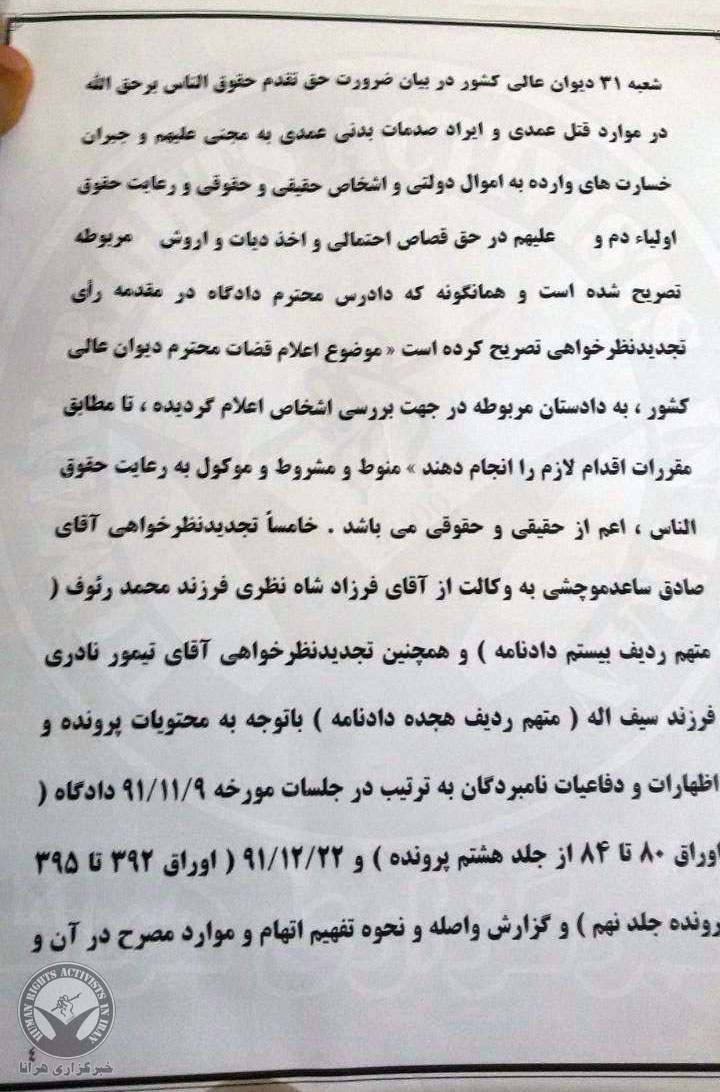 شعبه ۳۱ دیوان عالی کشور در بیان ضرورت حق تقدم حقوق الناس برحق الله
در موارد قتل عمدی و ایراد صدمات بدنی عمدی به مجنی علیهم و جبران
خسارت های وارده به اموال دولتی و اشخاص حقیقی و حقوقی و رعایت حقوق
اولیاء دم و علیهم در حق قصاص احتمالی و اخذ دیات و اروش مربوطه
تصریح شده است و همانگونه که دادرس محترم دادگاه در مقدمه رأی
تجدیدنظرخواهی تصریح کرده است « موضوع اعلام قضات محترم دیوان عالی
کشور ، به دادستان مربوطه در جهت بررسی اشخاص اعلام گردیده ، تا مطابق
مقررات اقدام لازم را انجام دهند » منوط و مشروط و موکول به رعایت حقوق
الناس ، اعم از حقیقی و حقوقی می باشد . خامساً تجدیدنظرخواهی آقای
صادق ساعدموچشی به وکالت از آقای فرزاد شاه نظری فرزند محمد رئوف (
متهم ردیف بیستم دادنامه ) و همچنین تجدیدنظرخواهی آقای تیمور نادری
فرزند سیف اله ( متهم ردیف هجده دادنامه ) باتوجه به محتویات پرونده و
اظهارات و دفاعیات نامبردگان به ترتیب در جلسات مورخه ۹۱/۱۱/۹ دادگاه (
اوراق ۸۰ تا ۸۴ از جلد هشتم پرونده ) و ۹۱/۱۲/۲۲ ( اوراق ۳۹۲ تا ۳۹۵
رونده جلد نهم ) و گزارش واصله و نحوه تفهیم اتهام و موارد مصرح در آن و
۴
HUMAN RIGHTS ACTIVISTS IN IRAN
خبرگزاری هرانا